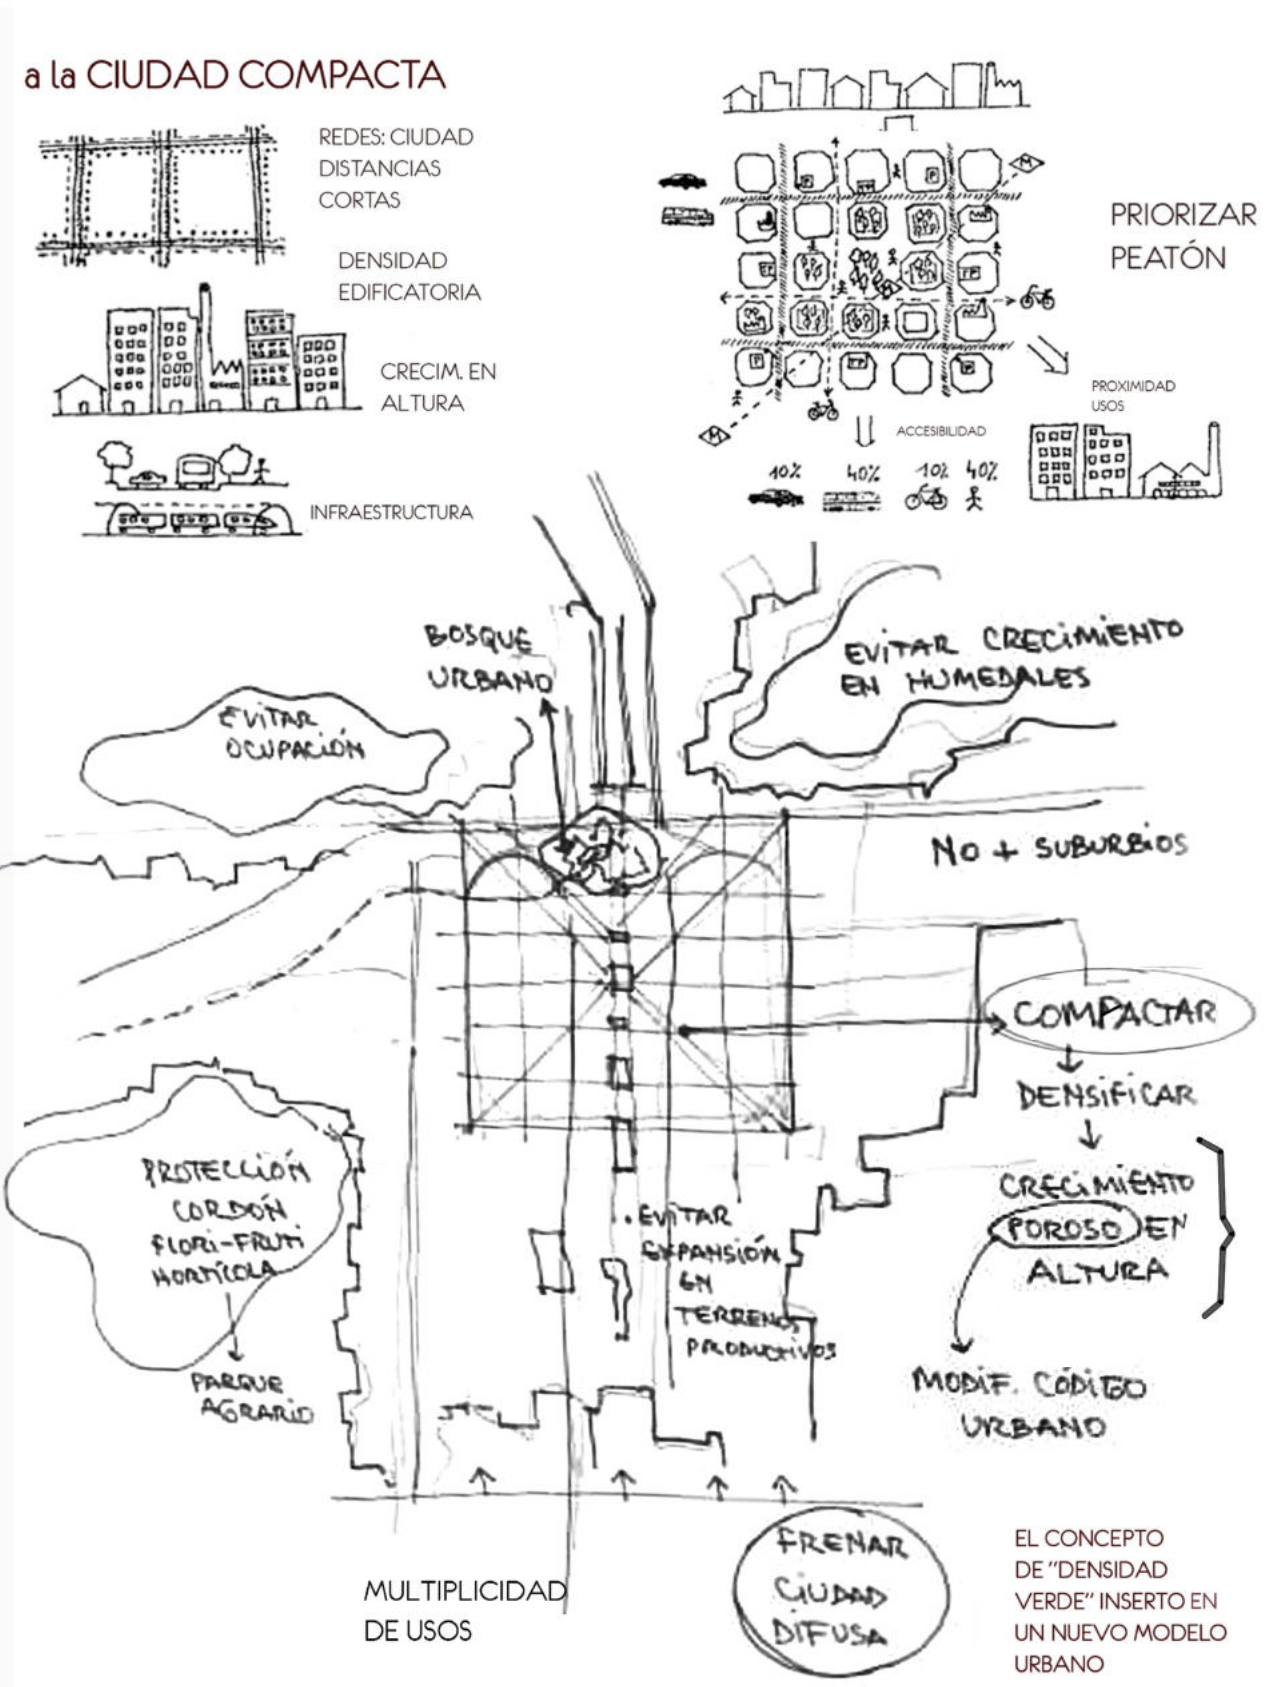 a la CIUDAD COMPACTA
REDES: CIUDAD
DISTANCIAS
CORTAS
DENSIDAD
EDIFICATORIA
CRECIM. EN
ALTURA
INFRAESTRUCTURA
M
P
P
P
P
P
M
PRIORIZAR
PEATÓN
PROXIMIDAD
USOS
ACCESIBILIDAD
10% 40% 10% 40%
BOSQUE
URBANO
EVITAR CRECIMIENTO
EN HUMEDALES
EVITAR
OCUPACIÓN
NO + SUBURBIOS
COMPACTAR
DENSIFICAR
CRECIMIENTO
POROSO EN
ALTURA
PROTECCIÓN
CORDÓN
FLORI-FRUTI
HORTÍCOLA
PARQUE
AGRARIO
. EVITAR
EXPANSIÓN
EN
TERRENOS
PRODUCTIVOS
MODIF. CÓDIGO
URBANO
FRENAR
CIUDAD
DIFUSA
MULTIPLICIDAD
DE USOS
EL CONCEPTO
DE "DENSIDAD
VERDE" INSERTO EN
UN NUEVO MODELO
URBANO